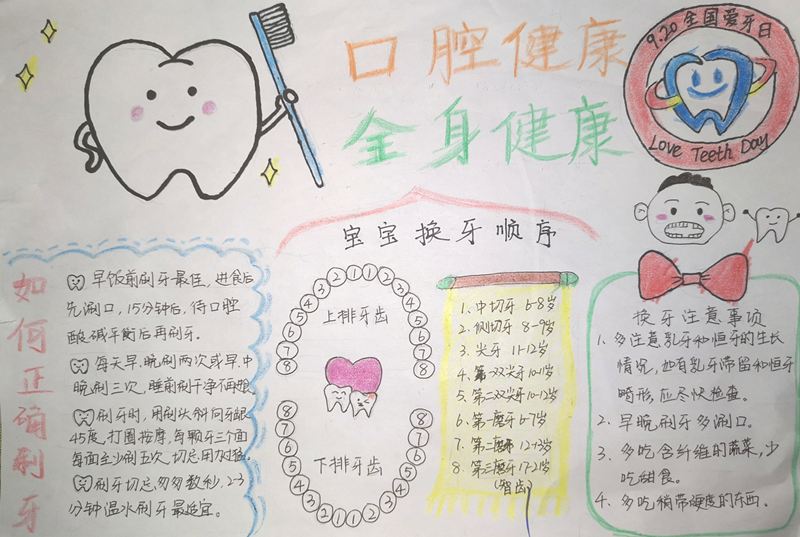 口腔健康
全身健康
9.20全国爱牙日
Love Teeth Day
如何正确刷牙
早饭前刷牙最佳,进食后
先漱口,15分钟后,待口腔
酸碱平衡后再刷牙.
每天早、晚刷两次或早、中
晚刷三次,睡前刷干净不再吃
刷牙时,用刷头斜向牙龈
45度,打圈按摩,每颗牙三个面
每面至少刷五次,切忌用力过猛.
刷牙切忌匆匆数秒,2-3
分钟温水刷牙最适宜.
宝宝换牙顺序
上排牙齿
8 7 6 5 4 3 2 1 1 2 3 4 5 6 7 8
8 7 6 5 4 3 2 1 1 2 3 4 5 6 7 8
下排牙齿
1、中切牙 6-8岁
2、侧切牙 8-9岁
3、尖牙 11-12岁
4、第一双尖牙 10-11岁
5、第二双尖牙 10-12岁
6、第一磨牙 6-7岁
7、第二磨牙 12-13岁
8、第三磨牙 17-21岁
(智齿)
换牙注意事项
1、多注意乳牙和恒牙的生长
情况,如有乳牙滞留和恒牙
畸形,应尽快检查。
2、早晚刷牙多漱口.
3、多吃含纤维的蔬菜,少
吃甜食。
4、多吃稍带硬度的东西.